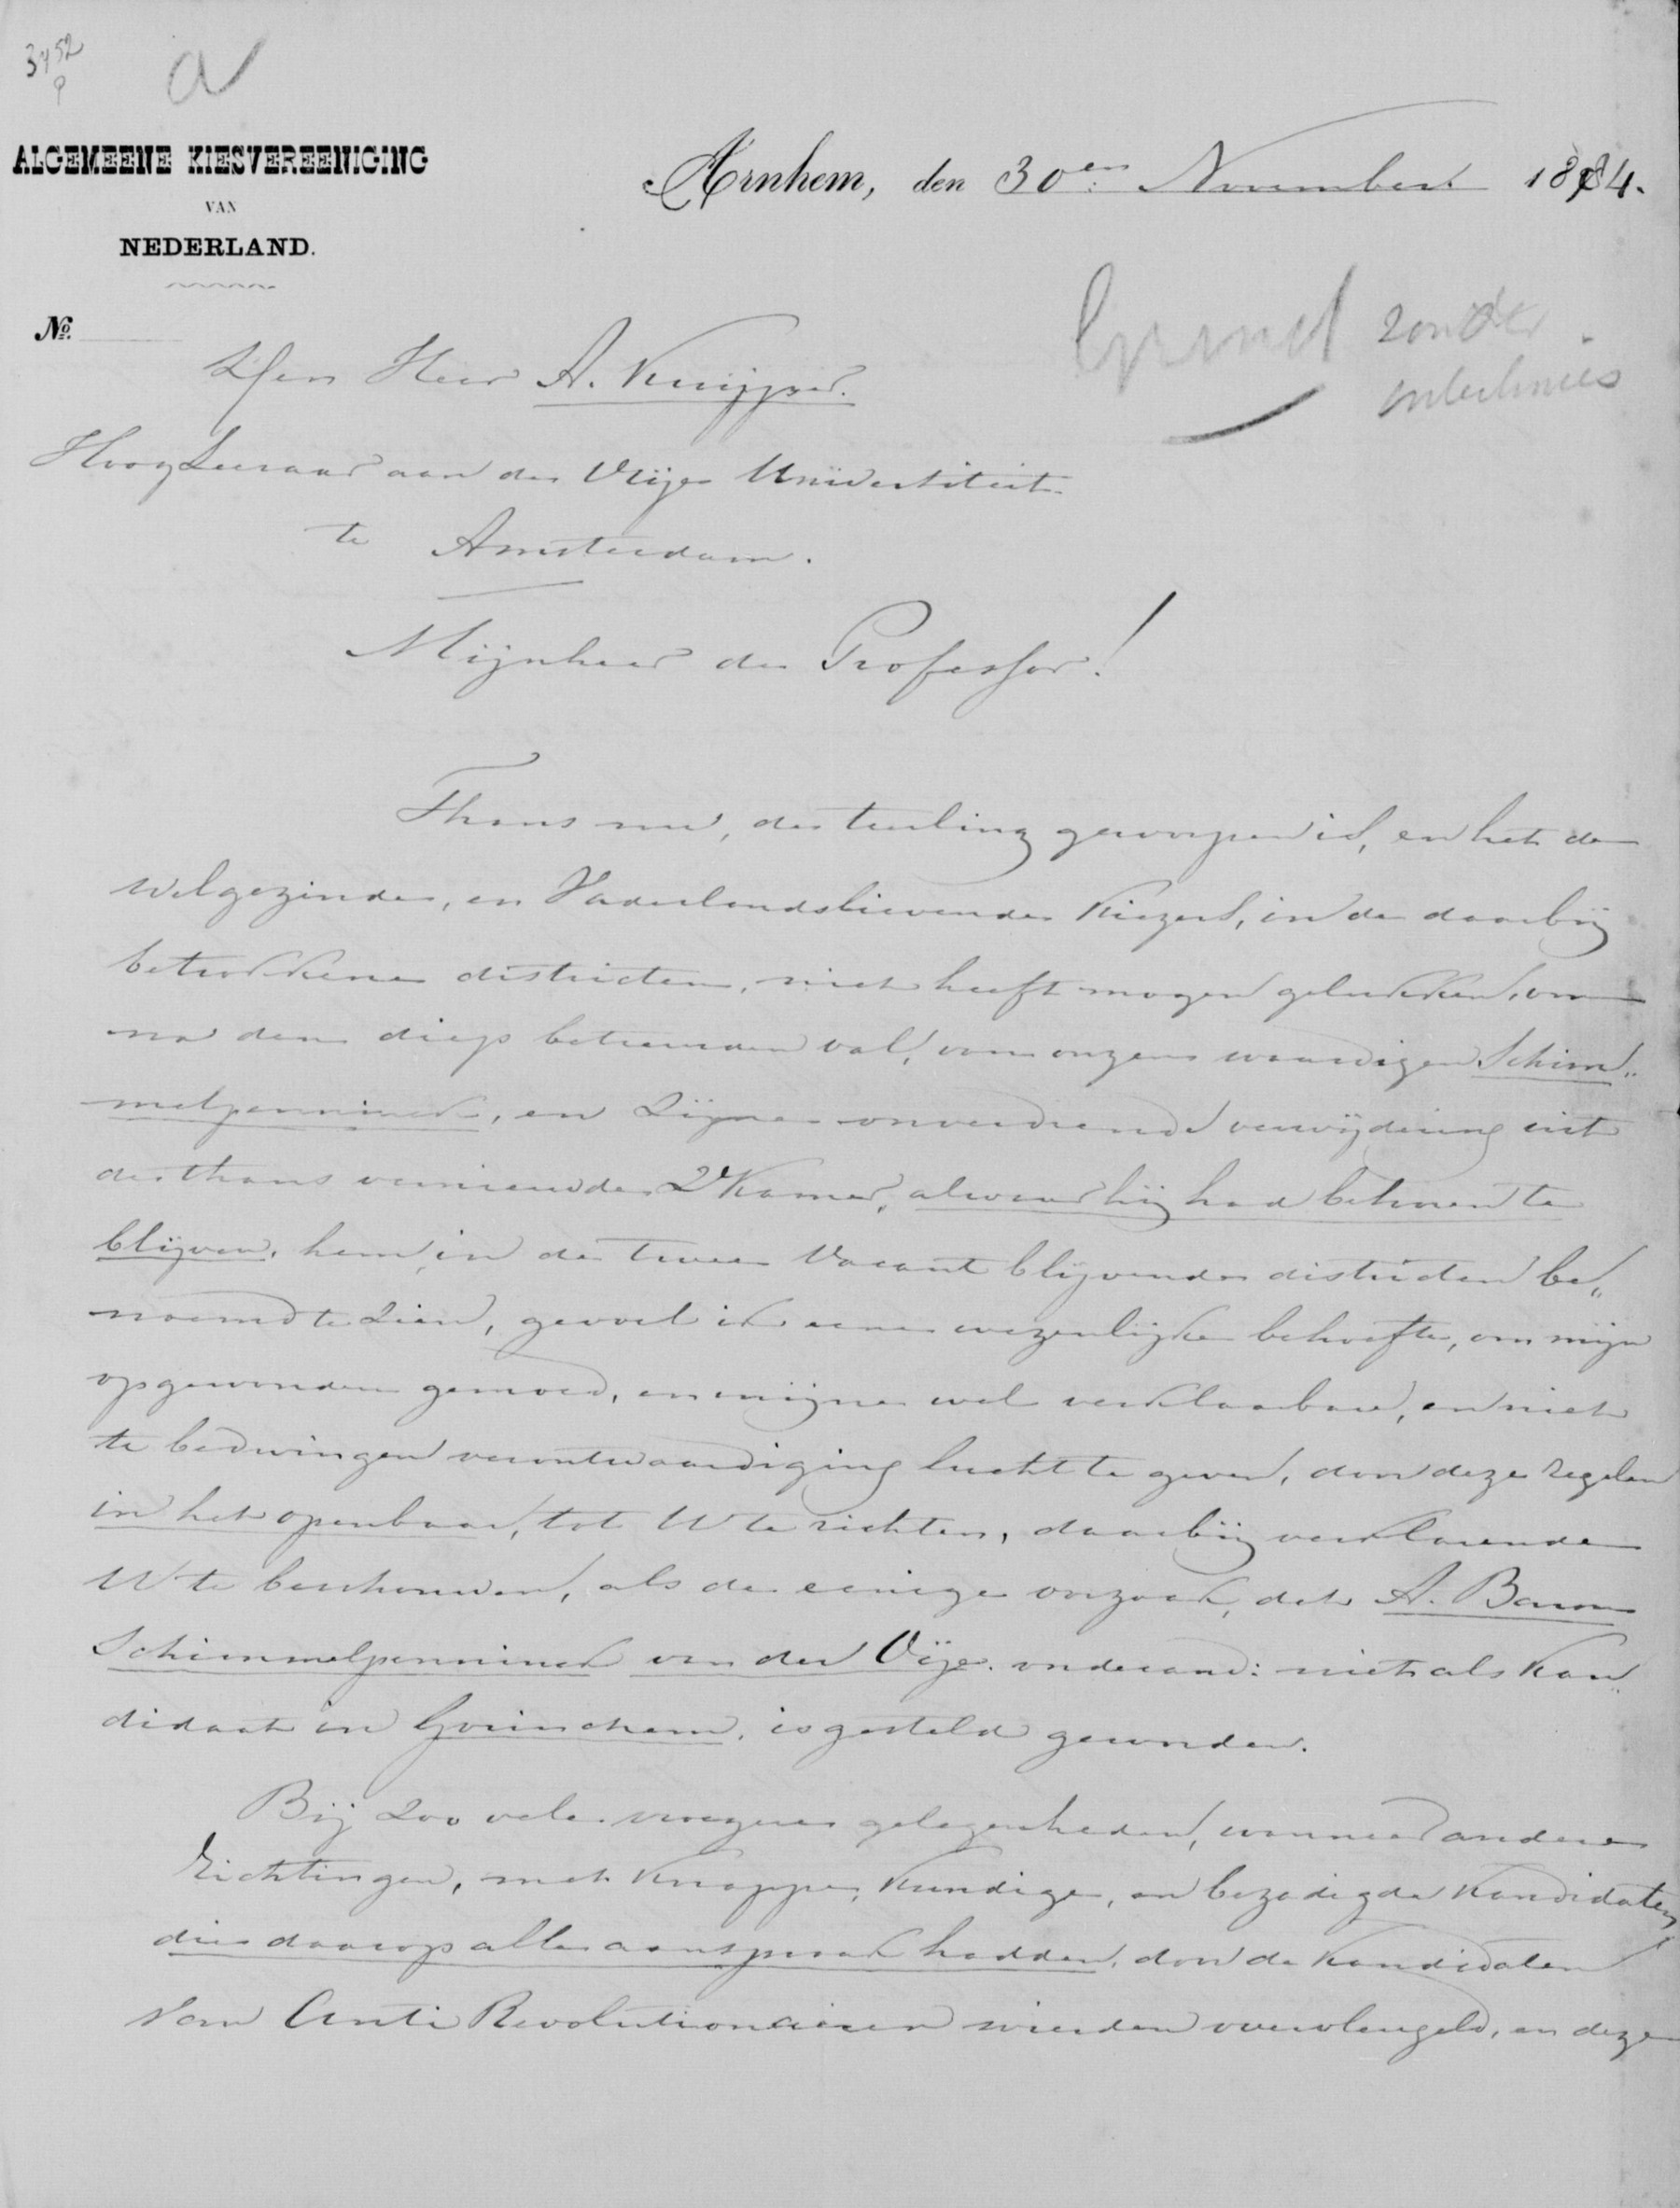 3452
a
ALGEMEENE KIESVEREENIGING
VAN
NEDERLAND.
Arnhem, den 30en November 1884.
zonder
No.
Heer A. Kuijper.
Hoogleeraar aan de Vrije Universiteit
te Amsterdam.
Mijnheer de Professor!
Thans nu, de teerling geworpen is, en het de
welgezinde, en Vaderlandslievende Kiezers, in de daarbij
betrokkene districten, niet heeft mogen gelukken, om
na den diep betreurden val, van onzen waardigen Schim„
melpenninck, en Zijne onverdiende verwijdering uit
de thans vernieuwde 2e Kamer, alwaar hij had behooren te
blijven, hem, in de twee Vacant blijvende districten be„
noemd te zien, gevoel ik eene wezenlijke behoefte, om mijn
opgewonden gemoed, en mijne wel verklaarbare, en niet
te bedwingen verontwaardiging lucht te geven, door deze regelen
in het openbaar, tot U te richten, daarbij verklarende
U te beschouwen, als de eenige oorzaak, dat A. Baron
Schimmelpenninck van der Oije. andermaal niet als Kan„
didaat in Gorinchem, is gesteld geworden.
Bij zoo vele vroegere gelegenheden, wanneer andere
richtingen, met Knappe, Kundige, en bezadigde Kandidaten,
die daarop alle aanspraak hadden, door de Kandidaten
van Anti Revolutionairen wierden overvleugeld, en deze